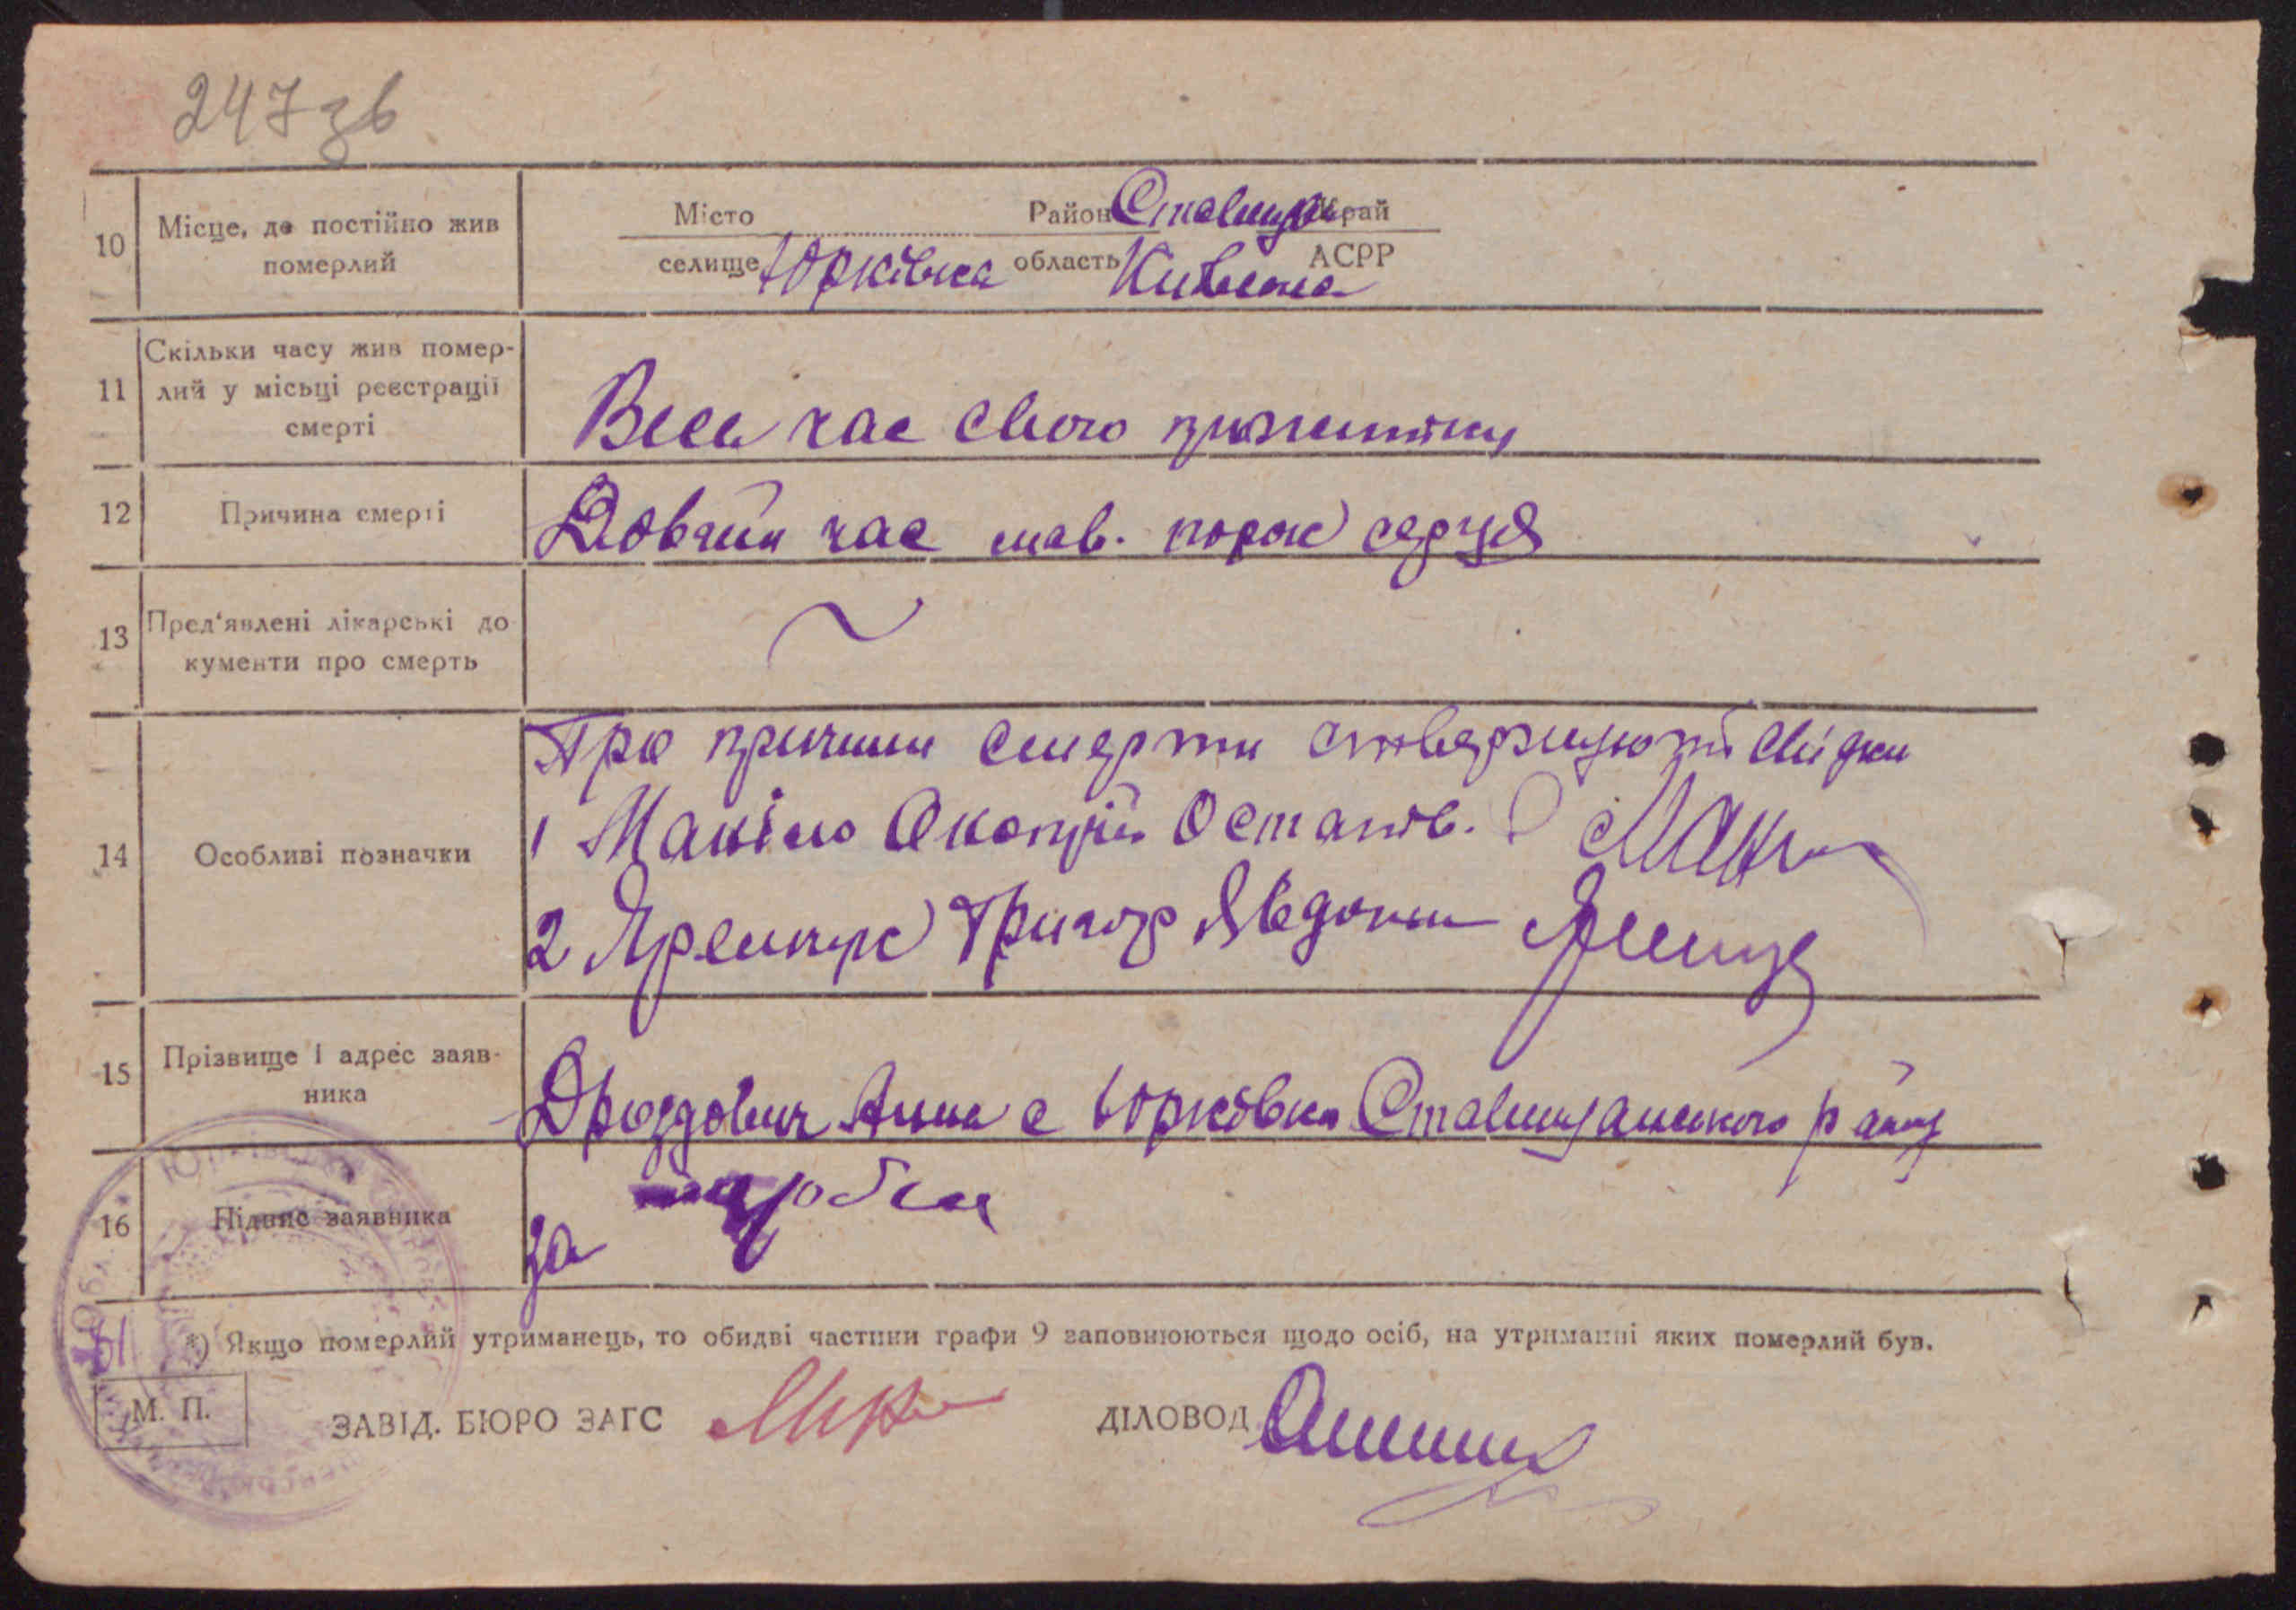 247 зв
10 Місце, де постійно жив померлий
Місто Район Ставищан Край
селище Юрківка область Київська АСРР
11 Скільки часу жив помер-
лий у місьці реєстрації
смерті
Весь час свого прожиттку
12 Причина смерті
Довгий час мав. порок серця
13 Пред'явлені лікарські до
кументи про смерть
14 Особливі позначки
Про причини смерти стверджують свідки
1 Макієо Остапів.
2 Яремчук Григор Явдоким
15 Прізвище і адрес заяв-
ника
Дроздович Анна с Юрківка Ставищанського району
16 Підпис заявника
за
*) Якщо померлий утриманець, то обидві частини графи 9 заповнюються щодо осіб, на утриманні яких померлий був.
М. П. ЗАВІД. БЮРО ЗАГС ДІЛОВОД